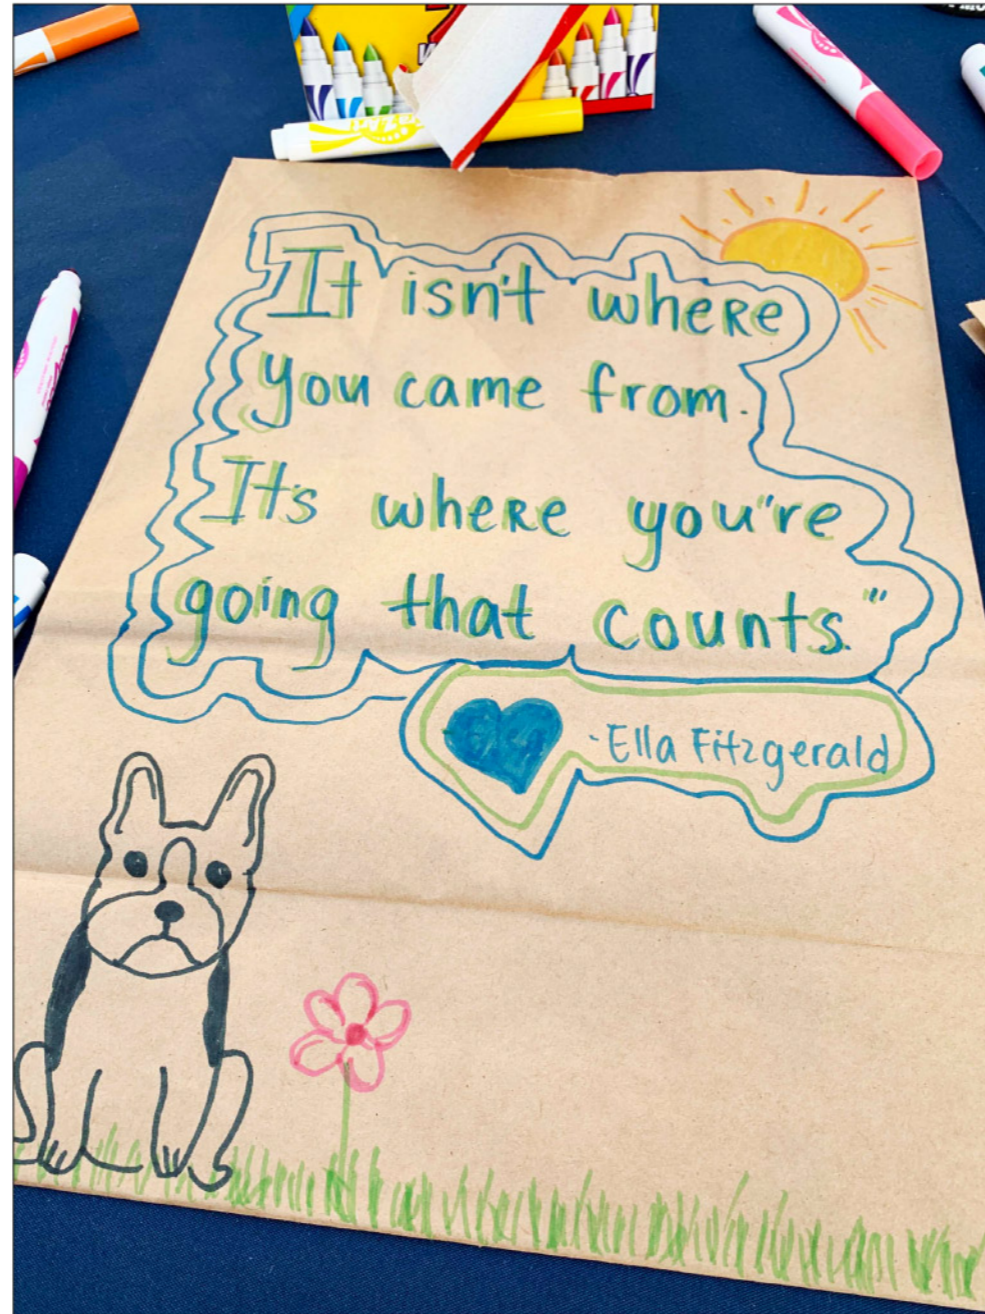 It isn't where
you came from.
It's where you"re
going that counts."
-Ella Fitzgerald